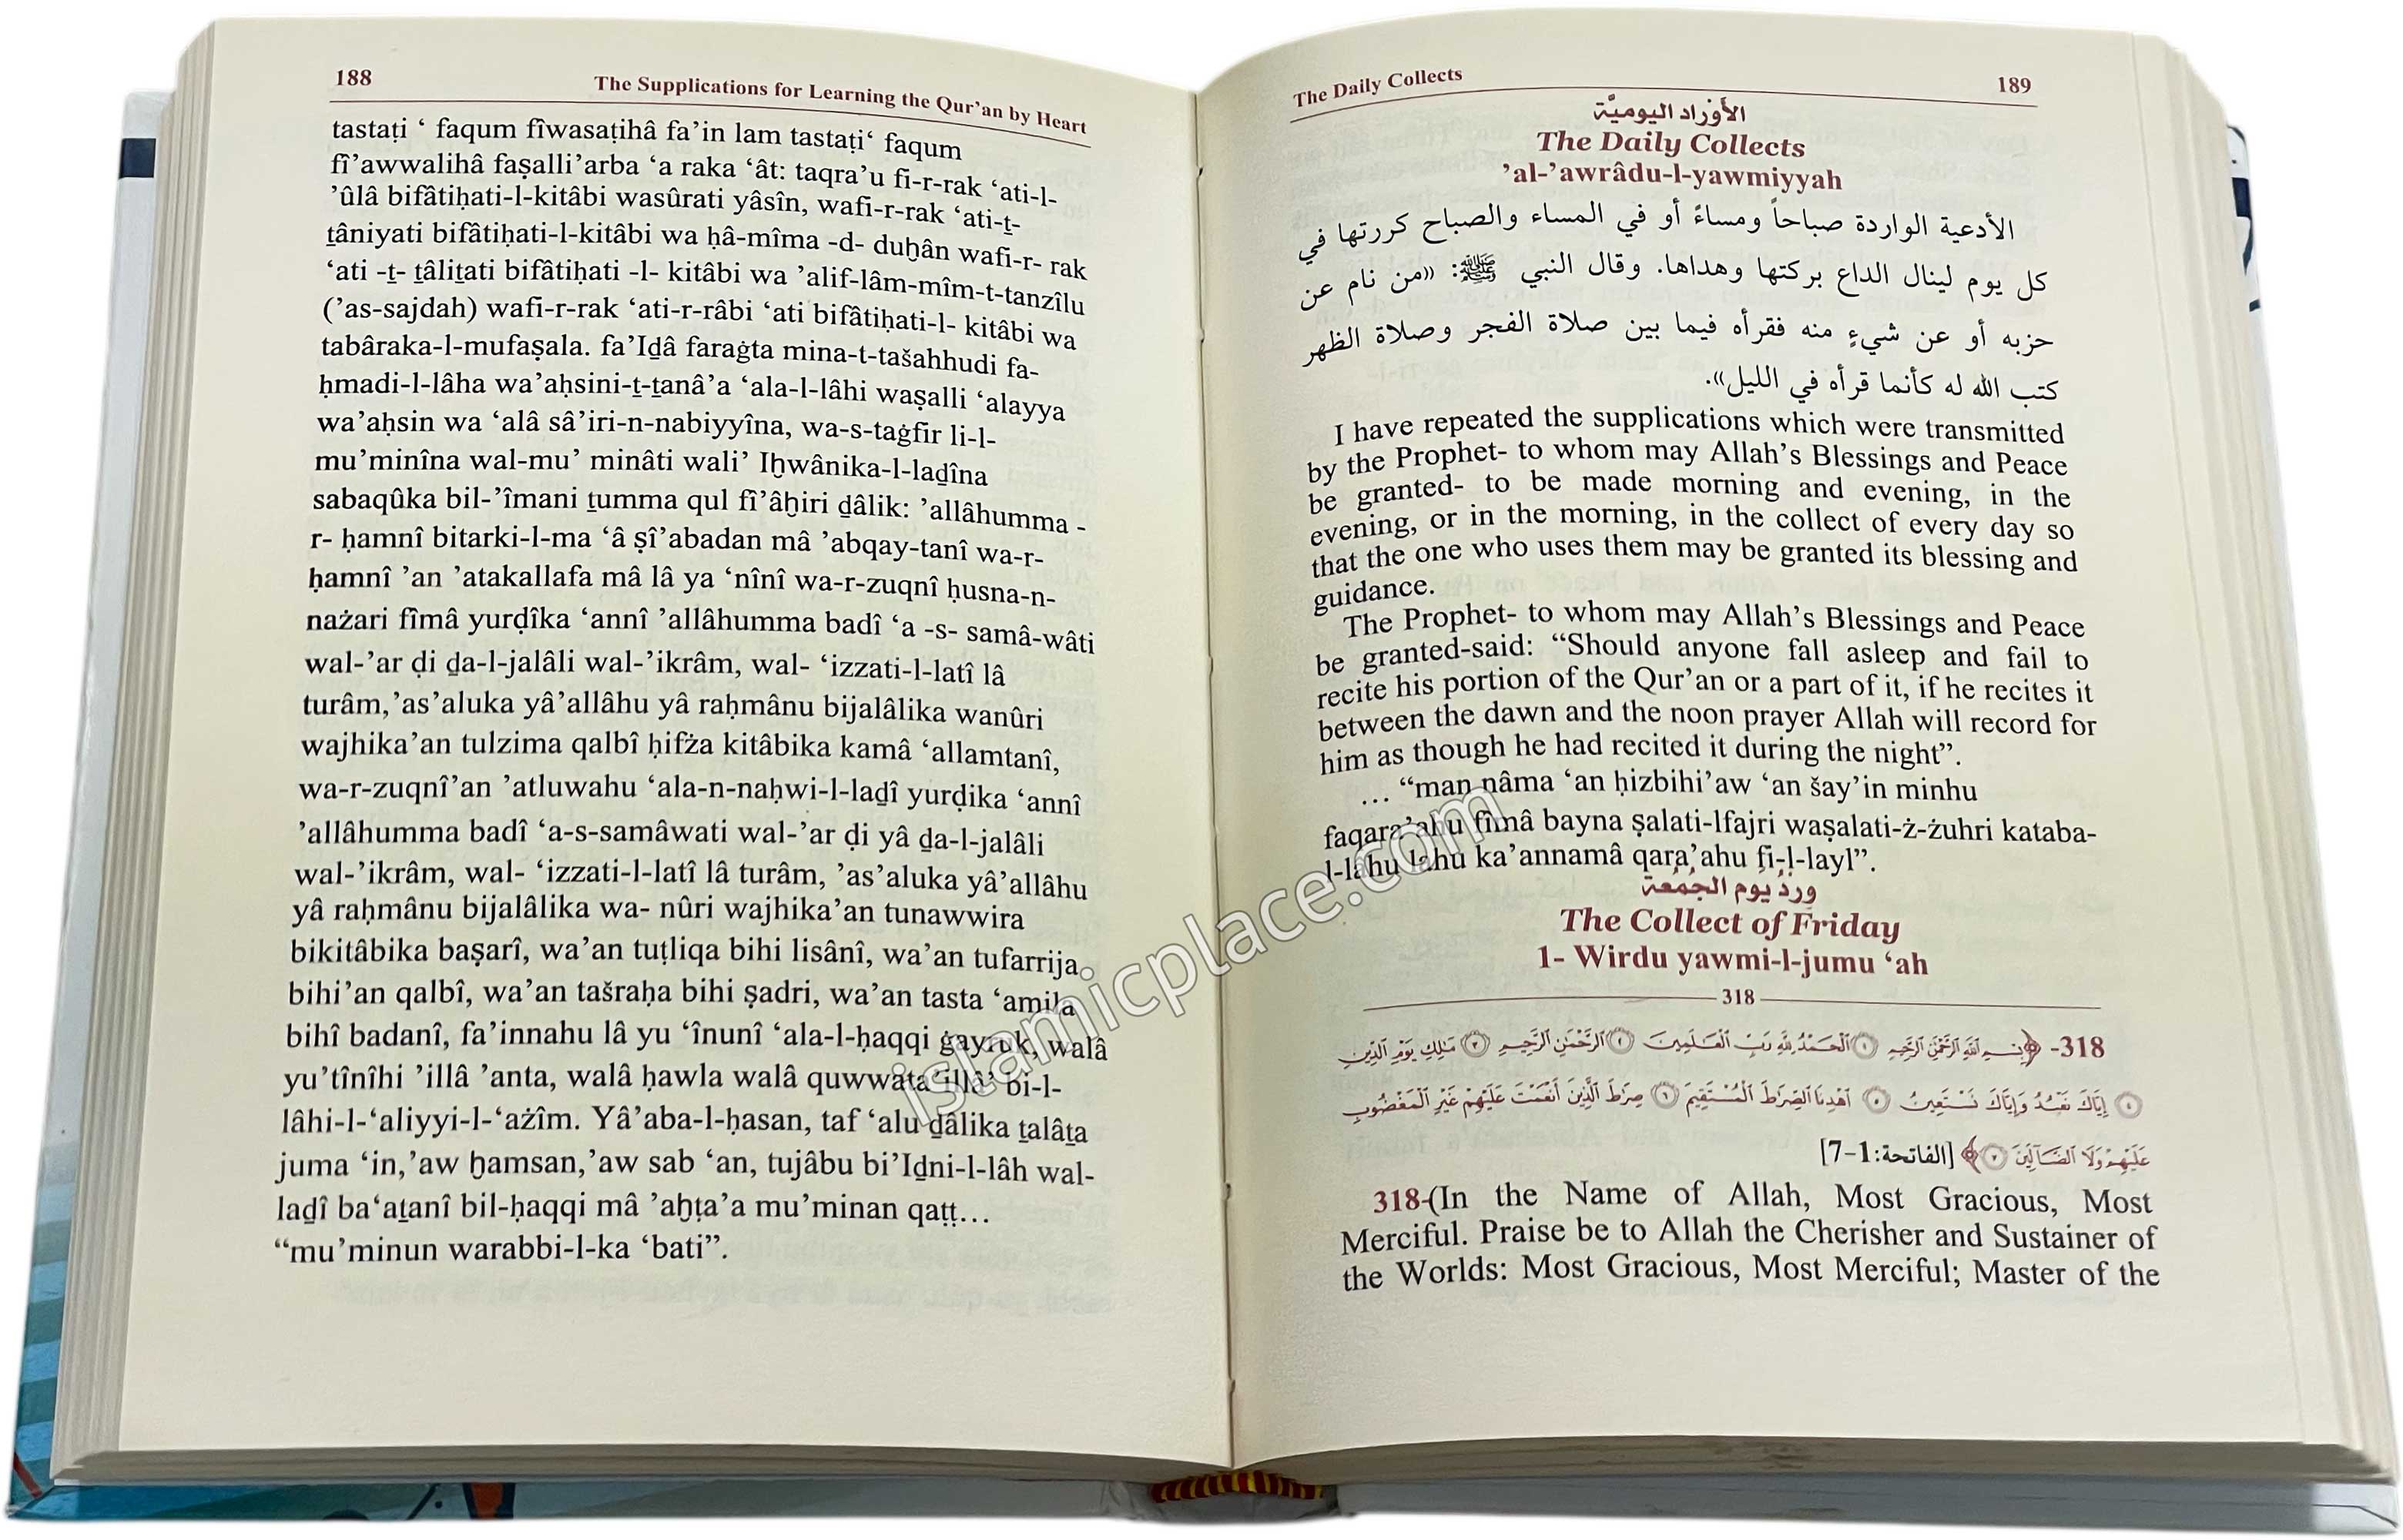 188
The Supplications for Learning the Qur’an by Heart
tastaṭi ‘ faqum fîwasaṭihâ fa’in lam tastaṭi‘ faqum
fî’awwalihâ faṣalli’arba ‘a raka ‘ât: taqra’u fi-r-rak ‘ati-l-
’ûlâ bifâtiḥati-l-kitâbi wasûrati yâsîn, wafi-r-rak ‘ati-ṯ-
ṯâniyati bifâtiḥati-l-kitâbi wa ḥâ-mîma -d- duḫân wafi-r- rak
‘ati -ṯ- ṯâliṯati bifâtiḥati -l- kitâbi wa ’alif-lâm-mîm-t-tanzîlu
(’as-sajdah) wafi-r-rak ‘ati-r-râbi ‘ati bifâtiḥati-l- kitâbi wa
tabâraka-l-mufaṣala. fa’Iḏâ faraġta mina-t-tašahhudi fa-
ḥmadi-l-lâha wa’aḥsini-ṯ-ṯanâ’a ‘ala-l-lâhi waṣalli ‘alayya
wa’aḥsin wa ‘alâ sâ’iri-n-nabiyyîna, wa-s-taġfir li-l-
mu’minîna wal-mu’ minâti wali’ Iḫwânika-l-laḏîna
sabaqûka bil-’îmani ṯumma qul fî’âḫiri ḏâlik: ’allâhumma -
r- ḥamnî bitarki-l-ma ‘â ṣî’abadan mâ ’abqay-tanî wa-r-
ḥamnî ’an ’atakallafa mâ lâ ya ‘nînî wa-r-zuqnî ḥusna-n-
nażari fîmâ yurḍîka ‘annî ’allâhumma badî ‘a -s- samâ-wâti
wal-’ar ḍi ḏa-l-jalâli wal-’ikrâm, wal- ‘izzati-l-latî lâ
turâm,’as’aluka yâ’allâhu yâ raḥmânu bijalâlika wanûri
wajhika’an tulzima qalbî ḥifża kitâbika kamâ ‘allamtanî,
wa-r-zuqnî’an ’atluwahu ‘ala-n-naḥwi-l-laḏî yurḍika ‘annî
’allâhumma badî ‘a-s-samâwati wal-’ar ḍi yâ ḏa-l-jalâli
wal-’ikrâm, wal- ‘izzati-l-latî lâ turâm, ’as’aluka yâ’allâhu
yâ raḥmânu bijalâlika wa- nûri wajhika’an tunawwira
bikitâbika baṣarî, wa’an tuṭliqa bihi lisânî, wa’an tufarrija
bihi’an qalbî, wa’an tašraḥa bihi ṣadri, wa’an tasta ‘amila
bihî badanî, fa’innahu lâ yu ‘înunî ‘ala-l-ḥaqqi ġayruk, walâ
yu’tînîhi ’illâ ’anta, walâ ḥawla walâ quwwata’illâ’ bi-l-
lâhi-l-‘aliyyi-l-‘ażîm. Yâ’aba-l-ḥasan, taf ‘alu ḏâlika ṯalâṯa
juma ‘in,’aw ḫamsan,’aw sab ‘an, tujâbu bi’Iḏni-l-lâh wal-
laḏî ba‘aṯanî bil-ḥaqqi mâ ’aḫṭa’a mu’minan qaṭṭ…
“mu’minun warabbi-l-ka ‘bati”.
The Daily Collects
189
الأوْراد اليوميَّة
The Daily Collects
’al-’awrâdu-l-yawmiyyah
الأدعية الواردة صباحاً ومساءً أو في المساء والصباح كررتها في
كل يوم لينال الداع بركتها وهداها. وقال النبي ﷺ: «من نام عن
حزبه أو عن شيءٍ منه فقرأه فيما بين صلاة الفجر وصلاة الظهر
كتب الله له كأنما قرأه في الليل».
I have repeated the supplications which were transmitted
by the Prophet- to whom may Allah’s Blessings and Peace
be granted- to be made morning and evening, in the
evening, or in the morning, in the collect of every day so
that the one who uses them may be granted its blessing and
guidance.
The Prophet- to whom may Allah’s Blessings and Peace
be granted-said: “Should anyone fall asleep and fail to
recite his portion of the Qur’an or a part of it, if he recites it
between the dawn and the noon prayer Allah will record for
him as though he had recited it during the night”.
… “man nâma ‘an ḥizbihi’aw ‘an šay’in minhu
faqara’ahu fîmâ bayna ṣalati-lfajri waṣalati-ż-żuhri kataba-
l-lâhu lahu ka’annamâ qara’ahu fi-l-layl”.
وِردُ يوم الجُمُعَة
The Collect of Friday
1- Wirdu yawmi-l-jumu ‘ah
318
318- ﴿بِسْمِ ٱللَّهِ ٱلرَّحْمَٰنِ ٱلرَّحِيمِ ١ ٱلْحَمْدُ لِلَّهِ رَبِّ ٱلْعَٰلَمِينَ ٢ ٱلرَّحْمَٰنِ ٱلرَّحِيمِ ٣ مَٰلِكِ يَوْمِ ٱلدِّينِ
٤ إِيَّاكَ نَعْبُدُ وَإِيَّاكَ نَسْتَعِينُ ٥ ٱهْدِنَا ٱلصِّرَٰطَ ٱلْمُسْتَقِيمَ ٦ صِرَٰطَ ٱلَّذِينَ أَنْعَمْتَ عَلَيْهِمْ غَيْرِ ٱلْمَغْضُوبِ
عَلَيْهِمْ وَلَا ٱلضَّآلِّينَ ٧﴾ [الفاتحة:1-7]
318-(In the Name of Allah, Most Gracious, Most
Merciful. Praise be to Allah the Cherisher and Sustainer of
the Worlds: Most Gracious, Most Merciful; Master of the
islamicplace.com